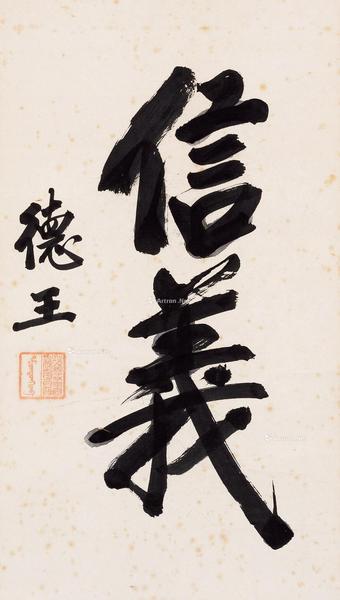 信義
德王
Artron.Net